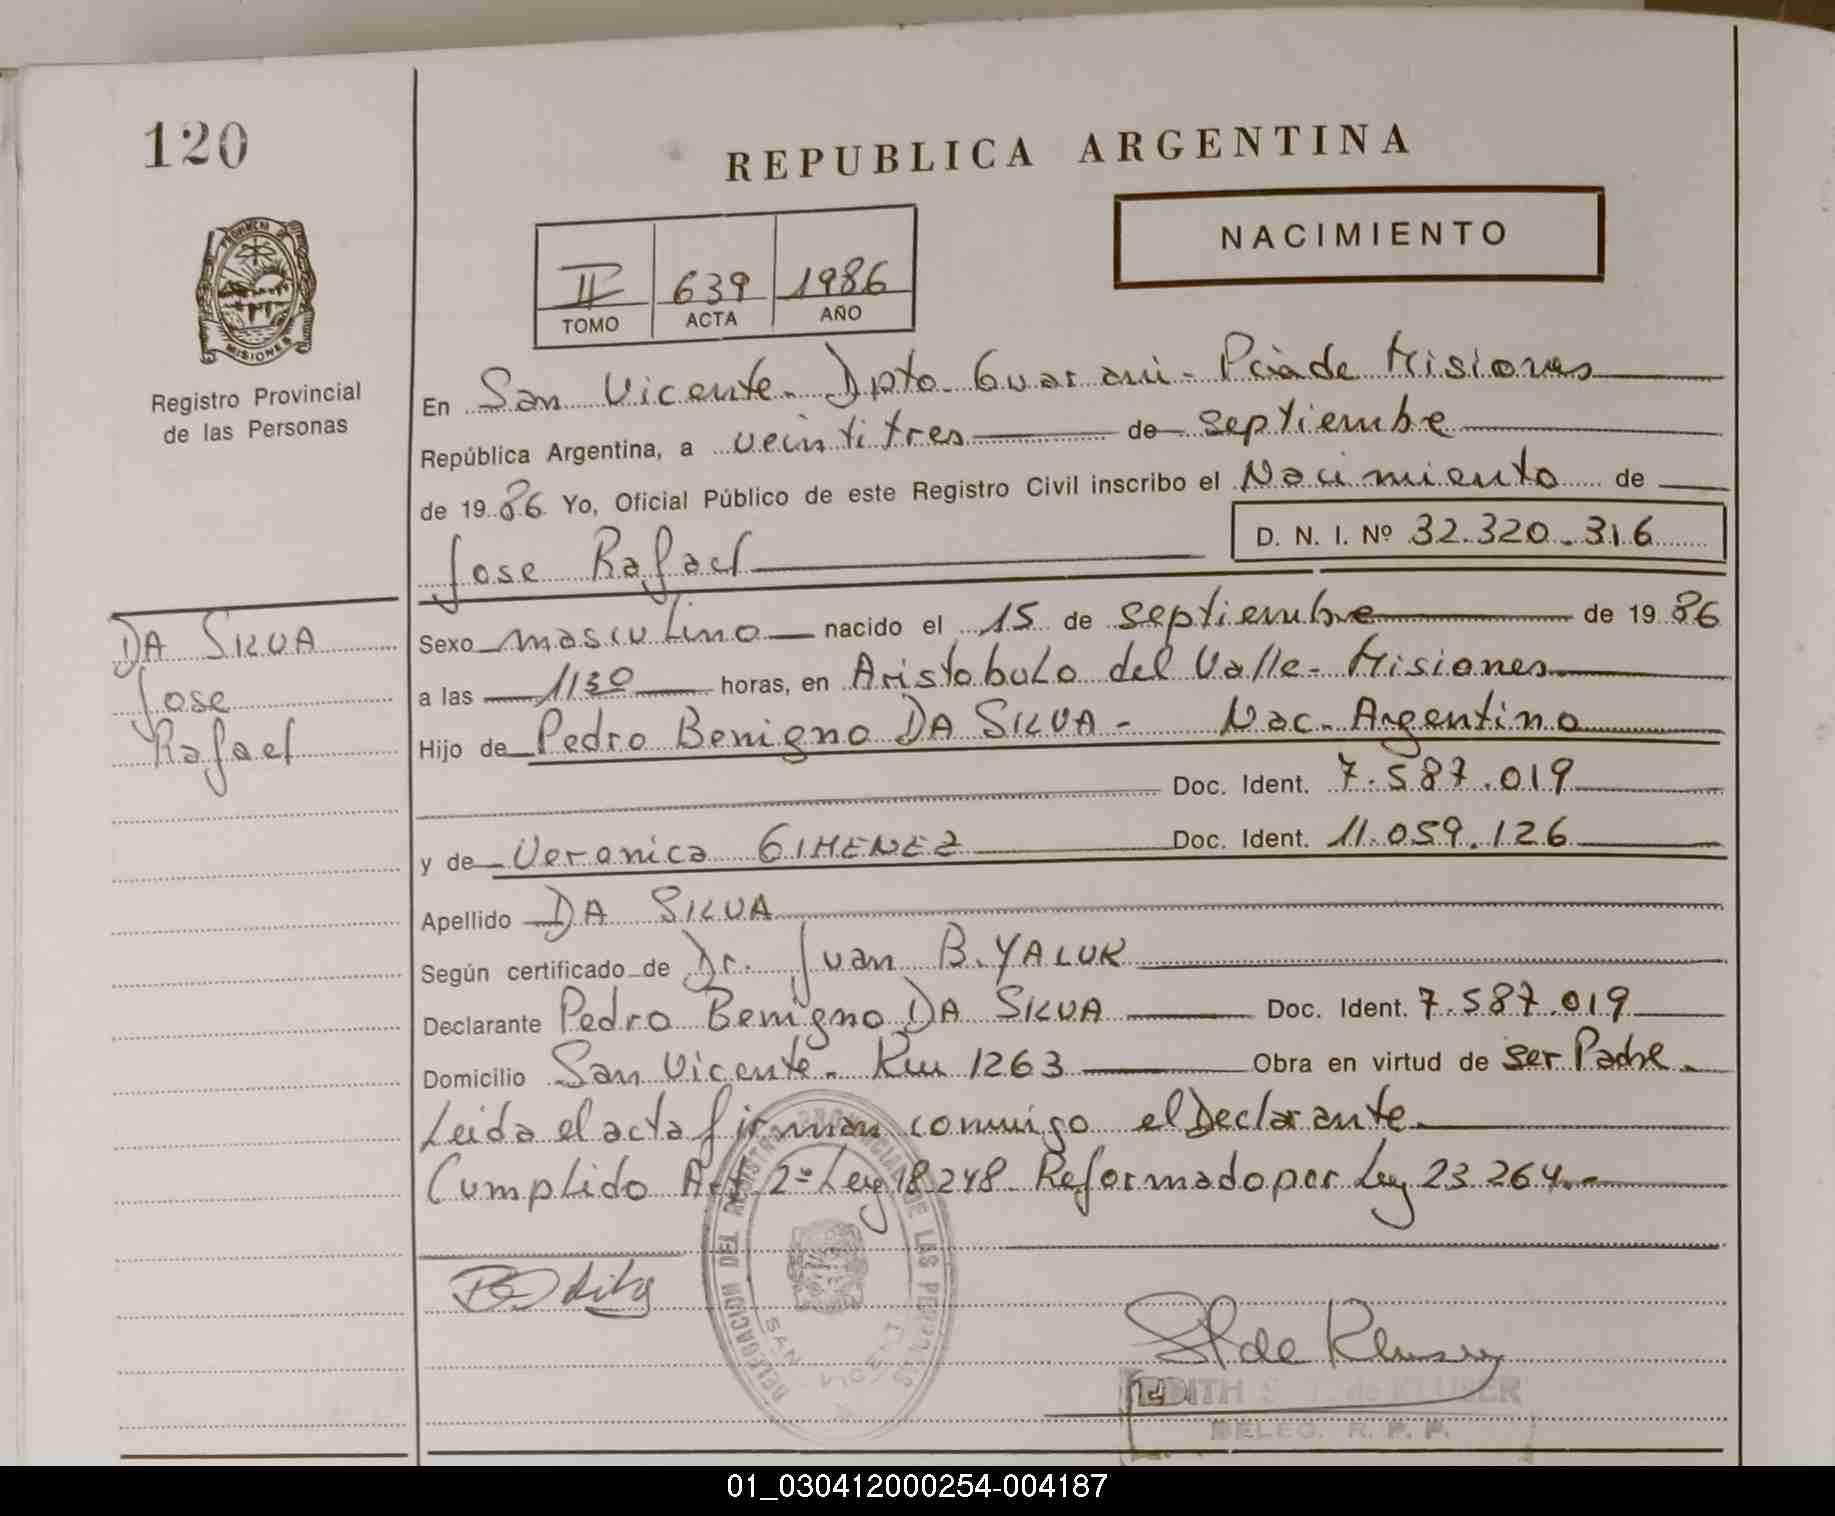 120
REPUBLICA ARGENTINA
NACIMIENTO
II 639 1986
TOMO ACTA AÑO
PROVINCIA DE
MISIONES
Registro Provincial
de las Personas
En San Vicente - Dpto Guarani - Pcia de Misiones
República Argentina, a veintitres de septiembre
de 1986 Yo, Oficial Público de este Registro Civil inscribo el Nacimiento de
Jose Rafael D. N. I. Nº 32.320.316
DA SILVA
Jose
Rafael
Sexo masculino nacido el 15 de septiembre de 1986
a las 1130 horas, en Aristobulo del Valle - Misiones
Hijo de Pedro Benigno DA SILVA - Nac. Argentino
Doc. Ident. 7.587.019
y de Veronica GIMENEZ Doc. Ident. 11.059.126
Apellido DA SILVA
Según certificado de Dr. Juan B. YALUK
Declarante Pedro Benigno DA SILVA Doc. Ident. 7.587.019
Domicilio San Vicente - Km 1263 Obra en virtud de ser Padre.
Leida el acta firman conmigo el Declarante
Cumplido Art. 2º Ley 18.248 Reformado por Ley 23.264.-
DELEGACION DEL REGISTRO PROVINCIAL DE LAS PERSONAS
SAN VICENTE
EDITH S. T. de KLUSER
DELEG. R. P. P.
01_030412000254-004187